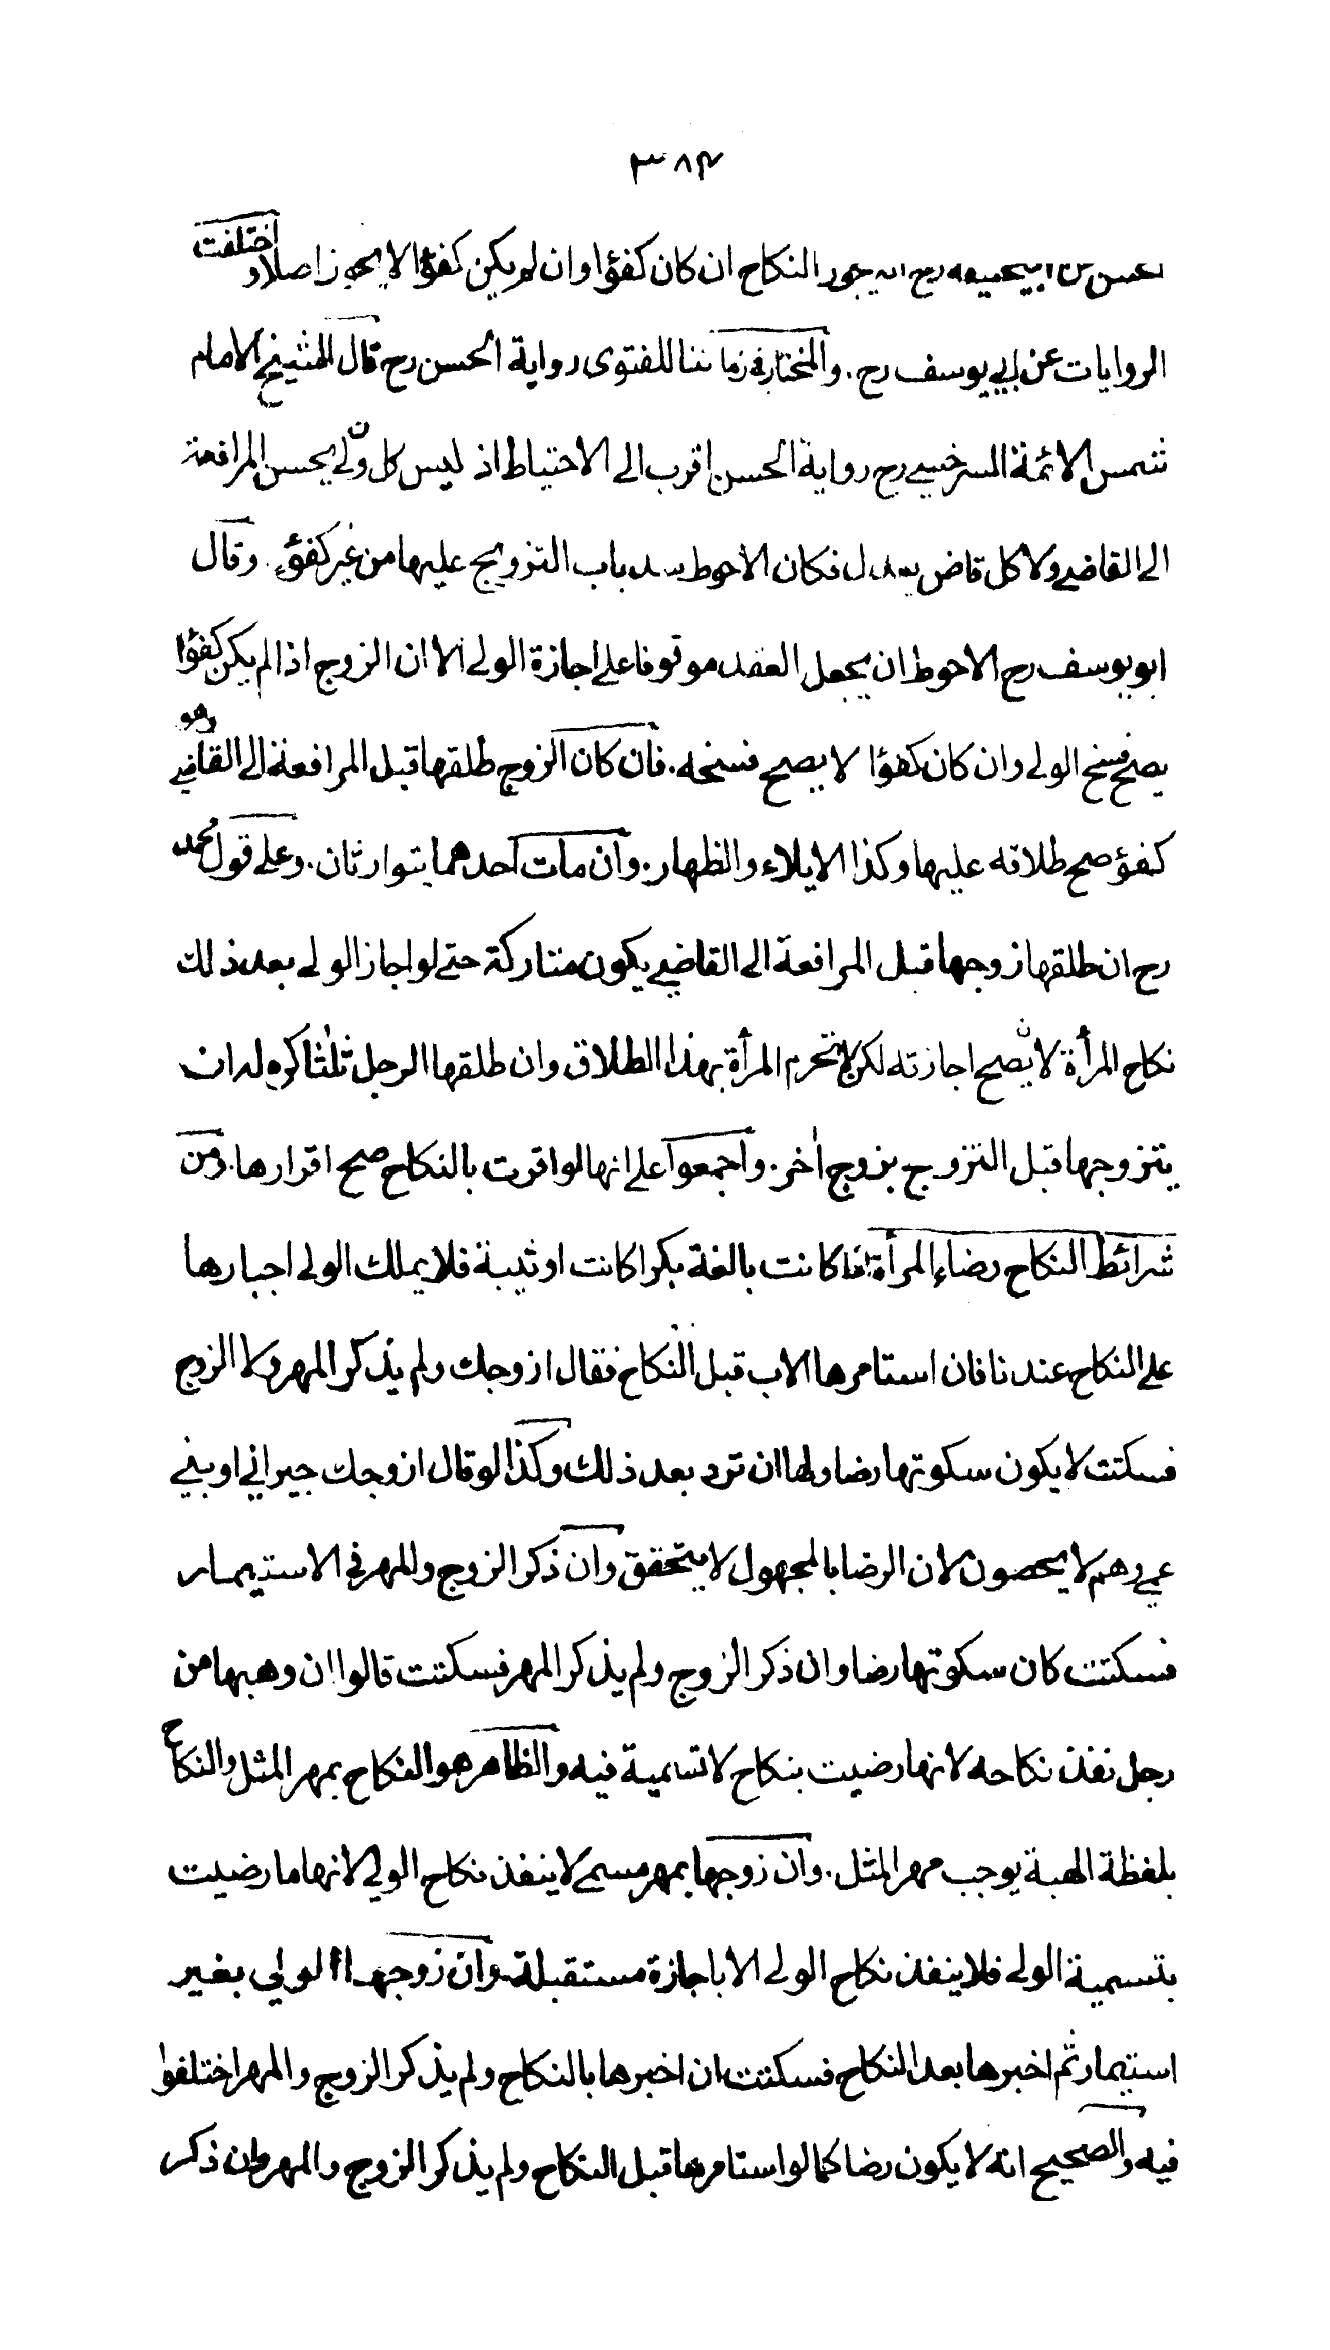 ٣٨٤
الحسن عن ابيحنيفه رح انه يجوز النكاح ان كان كفؤا وان لم يكن كفؤا لا يجوز اصلا و اختلفت
الروايات عن ابي يوسف رح. والمختار في زماننا للفتوى رواية الحسن رح قال الشيخ الامام
شمس الائمة السرخسي رح رواية الحسن اقرب الى الاحتياط اذ ليس كل ولي يحسن المرافعة
الى القاضي ولا كل قاض يعدل فكان الاحوط سد باب التزويج عليها من غير كفؤ. وقال
ابو يوسف رح الاحوط ان يجعل العقد موقوفا على اجازة الولي الا ان الزوج اذا لم يكن كفؤا
يصح فسخ الولي وان كان كفؤا لا يصح فسخه. فان كان الزوج طلقها قبل المرافعة الى القاضي وهو
كفؤ صح طلاقه عليها وكذا الايلاء والظهار. وان مات احدهما يتوارثان. وعلى قول محمد
رح ان طلقها زوجها قبل المرافعة الى القاضي يكون متاركة حتى لو اجاز الولي بعد ذلك
نكاح المرأة لا يصح اجازته لكن لا تحرم المرأة بهذا الطلاق وان طلقها الرجل ثلثا كره له ان
يتزوجها قبل التزوج بزوج اخر. واجمعوا على انها لو اقرت بالنكاح صح اقرارها. ومن
شرائط النكاح رضاء المرأة اذا كانت بالغة بكرا كانت او ثيبة فلا يملك الولي اجبارها
على النكاح عندنا فان استامرها الاب قبل النكاح فقال ازوجك ولم يذكر المهر ولا الزوج
فسكتت لا يكون سكوتها رضا ولها ان ترد بعد ذلك وكذا لو قال ازوجك جيراني او بني
عمي وهم لا يحصون لان الرضا بالمجهول لا يتحقق وان ذكر الزوج والمهر في الاستيمار
فسكتت كان سكوتها رضا وان ذكر الزوج ولم يذكر المهر فسكتت قالوا ان وهبها من
رجل نفذ نكاحه لانها رضيت بنكاح لا تسمية فيه والظاهر هو النكاح بمهر المثل والنكاح
بلفظة الهبة يوجب مهر المثل. وان زوجها بمهر مسمى لا ينفذ نكاح الولي لانها ما رضيت
بتسمية الولي فلا ينفذ نكاح الولي الا باجازة مستقبلة وان زوجها الولي بغير
استيمار ثم اخبرها بعد النكاح فسكتت ان اخبرها بالنكاح ولم يذكر الزوج والمهر اختلفوا
فيه والصحيح انه لا يكون رضا كما لو استامرها قبل النكاح ولم يذكر الزوج والمهر وان ذكر